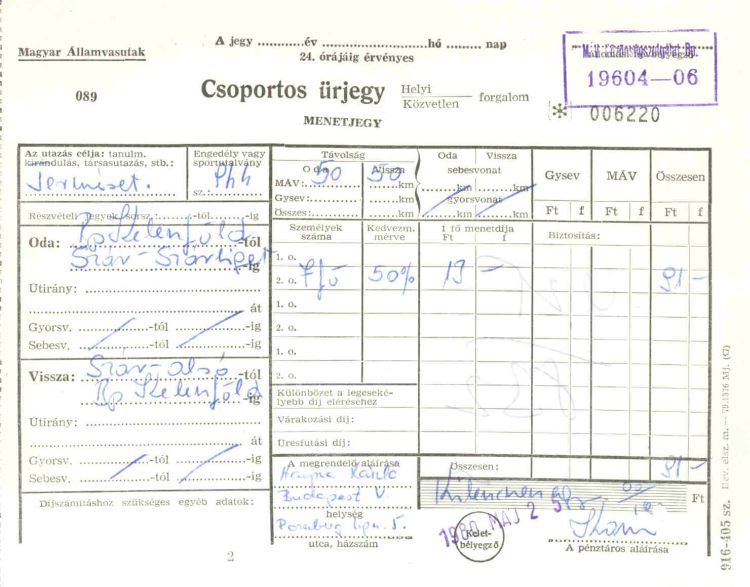 Magyar Államvasutak
A jegy ............év ......................hó ......... nap
24. órájáig érvényes
19604—06
089
Csoportos ürjegy
Helyi
Közvetlen
forgalom
* 006220
MENETJEGY
Az utazás célja: tanulm.
kirándulás, társasutazás, stb.:
Engedély vagy
sportutalvány
sz.:
Távolság
Oda 50 Vissza 50
MÁV: km km
Gysev: km km
Összes: km km
Oda Vissza
sebesvonat
km km
gyorsvonat
km km
Gysev MÁV Összesen
Ft f Ft f Ft f
Részvételi jegyek sorsz.: -tól. -ig
Oda: Bp Kelenföld -tól
Szár-Szárliget -ig
Útirány:
át
Gyorsv. -tól -ig
Sebesv. -tól -ig
Személyek
száma
Kedvezm.
mérve
1 fő menetdíja
Ft f
Biztosítás:
1. o.
2. o. 7 fő 50% 13 — 91 —
1. o.
2. o.
1. o.
2. o.
Vissza: Szár-alsó -tól
Bp Kelenföld -ig
Útirány:
át
Gyorsv. -tól -ig
Sebesv. -tól -ig
Különbözet a legcseké-
lyebb díj eléréséhez
Várakozási díj:
Üresfutási díj:
Díjszámításhoz szükséges egyéb adatok:
A megrendelő aláírása
Budapest V.
helység
utca, házszám
Összesen: 91 —
Ft
1980 MAJ 2
Kelet-
bélyegző
A pénztáros aláírása
2
916-405 sz.